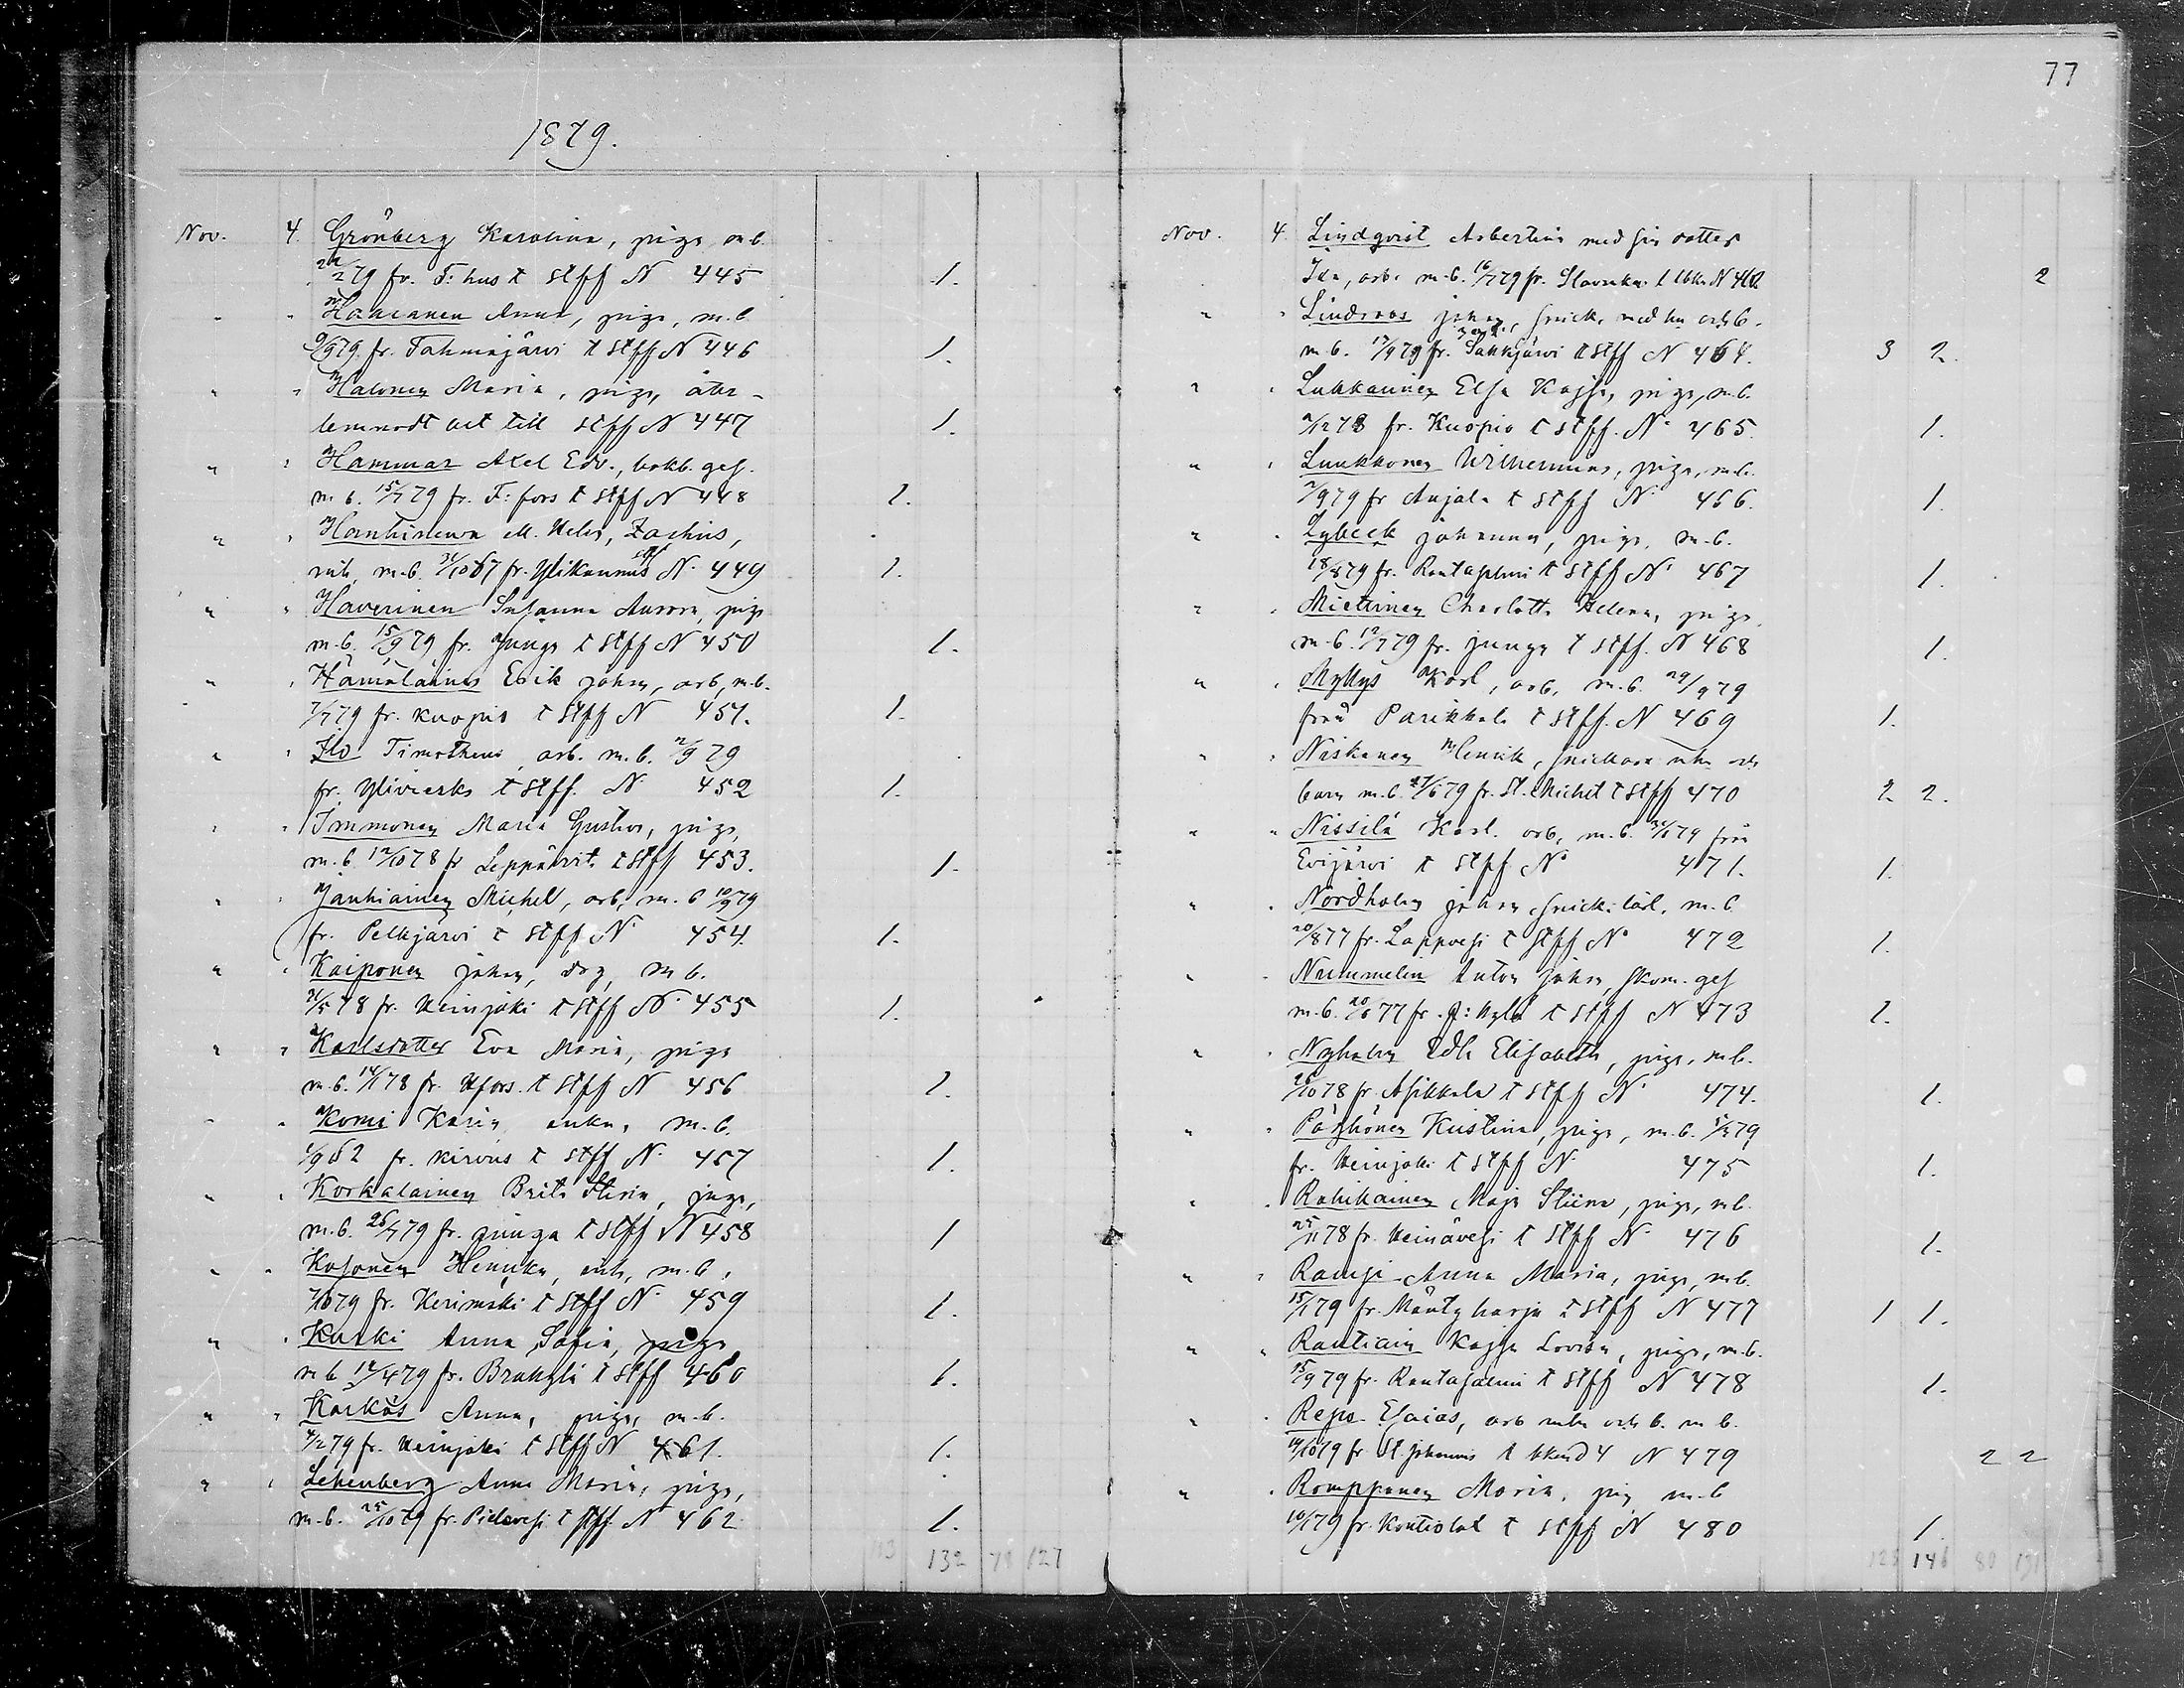 77
1879.
Nov. 4. Grönberg Karolina, piga m.b.
79 fr. F:hus t Stff N 445 1.
" " Hakanen Anna, piga, m.b.
9/9 79. fr. Tohmajärvi t Stff N 446 1.
" " Halonen Maria, piga, åter-
lemnadt act till Stff N 447 1.
" " Hammar Axel Edv., bokb. ges.
m.b. 15/7 79 fr. F:fors t Stff N 448 1.
" " M. Zachris,
m.b. 31/10 67 fr. Ylikannus Stff N. 449 1.
" " Haverinen Susanna Aurora, piga
m.b. 15/9 79 fr. Junga t Stff N 450 1.
" " Hämäläinen Erik Johan, arb, m.b.
7/7 79 fr. Kuopio t Stff N 451. 1.
" " Ilo Timotheus, arb. m.b. 79
fr. Ylivieska t Stff. N 452 1.
" " Immonen Maria Gustava, piga,
m.b. 12/10 78 fr Leppävirta t Stff 453. 1.
" " Janhiainen Michel, arb, m.b 10/9 79
fr. Pelkjärvi t Stff N. 454. 1.
" " Kaiponen Johan, drg, m.b.
78 fr. Heinjoki t Stff N. 455 1.
" " Karlsdotter Eva Maria, piga
m.b. 14/1 78 fr. Hfors. t Stff N 456 1.
" " Komi Karin, enka, m.b.
1/9 62 fr. Kirvus t Stff N. 457 1.
" " Korkalainen Brita Stina, piga,
m.b. 26/7 79 fr. Junga t Stff N 458 1
" " Kosonen Henrika, m.b.
7/10 79 fr. Kerimäki t Stff N. 459 1.
" " Kurki Anna Sofia, piga
m.b. 12/4 79 fr. Brahylä t Stff 460 1.
" " Karkäs Anna, piga, m.b.
4/2 79 fr. Heinjoki t Stff N 461. 1.
" " Lehenberg Anna Maria, piga,
m.b. 25/10 79 fr. Pielavesi t Stff. N 462 1.
132 78 127
Nov. 4. Lindqvist Albertina med sin dotter
Ida, arb. m.b. 16/7 79 fr. N 2
" " Lindroos Johan, snick. med hu och b.
m.b. 17/9 79 fr. Säkkjärvi t Stff N 464. 3 2.
" " Lukkarinen Elsa Kajsa, piga, m.b.
/12 78 fr. Kuopio t Stff. N. 465. 1.
" " Luukkonen Wilhelmina, piga, m.b.
/9 79 fr Anjala t Stff N. 466. 1.
" " Lybeck Johanna, piga, m.b.
18/8 79 fr. Rantasalmi t Stff N. 467 1.
" " Miettinen Charlotta Helena, piga,
m.b. 12/7 79 fr. Junga t Stff. N 468 1.
" " Myllys Karl, arb, m.b. 29/9 79
från Parikkala t Stff. N 469 1.
" " Niskanen Henrik, snickare och
barn m.b. 27/6 79 fr. St. Michel t Stff 470 2 2.
" " Nissilä Karl. arb, m.b. 79 frå
Evijärvi t Stff No 471. 1.
" " Nordholm Johan snick:lärl. m.b.
20/8 77 fr. Lappvesi t Stff No 472 1.
" " Nummelin Anton Johan, skom. ges
m.b. 77 fr. t Stff N 473 1.
" " Nyholm Eda Elisabeth, piga, m.b.
/10 78 fr. Asikkala t Stff N. 474. 1.
" " Pärhönen Kristina, piga, m.b. 79
fr. Heinjoki t Stff N 475 1.
" " Rahikainen Maja Stiina, piga, m.b.
25/11 78 fr. Heinävesi t Stff N. 476 1.
" " Anna Maria, piga, m.b.
15/1 79 fr. Mäntyharju t Stff N 477 1 1.
" " Rautiain Kajsa Lovisa, piga, m.b.
15/9 79 fr. Rantasalmi t Stff N 478 1.
" " Repo Esaias, arb och b. m.b.
/10 79 fr St. Johannis t N 479 2 2
" " Romppanen Maria, pig m.b
10/1 79 fr. Kontiolax t Stff N 480 1.
123 146 80 131